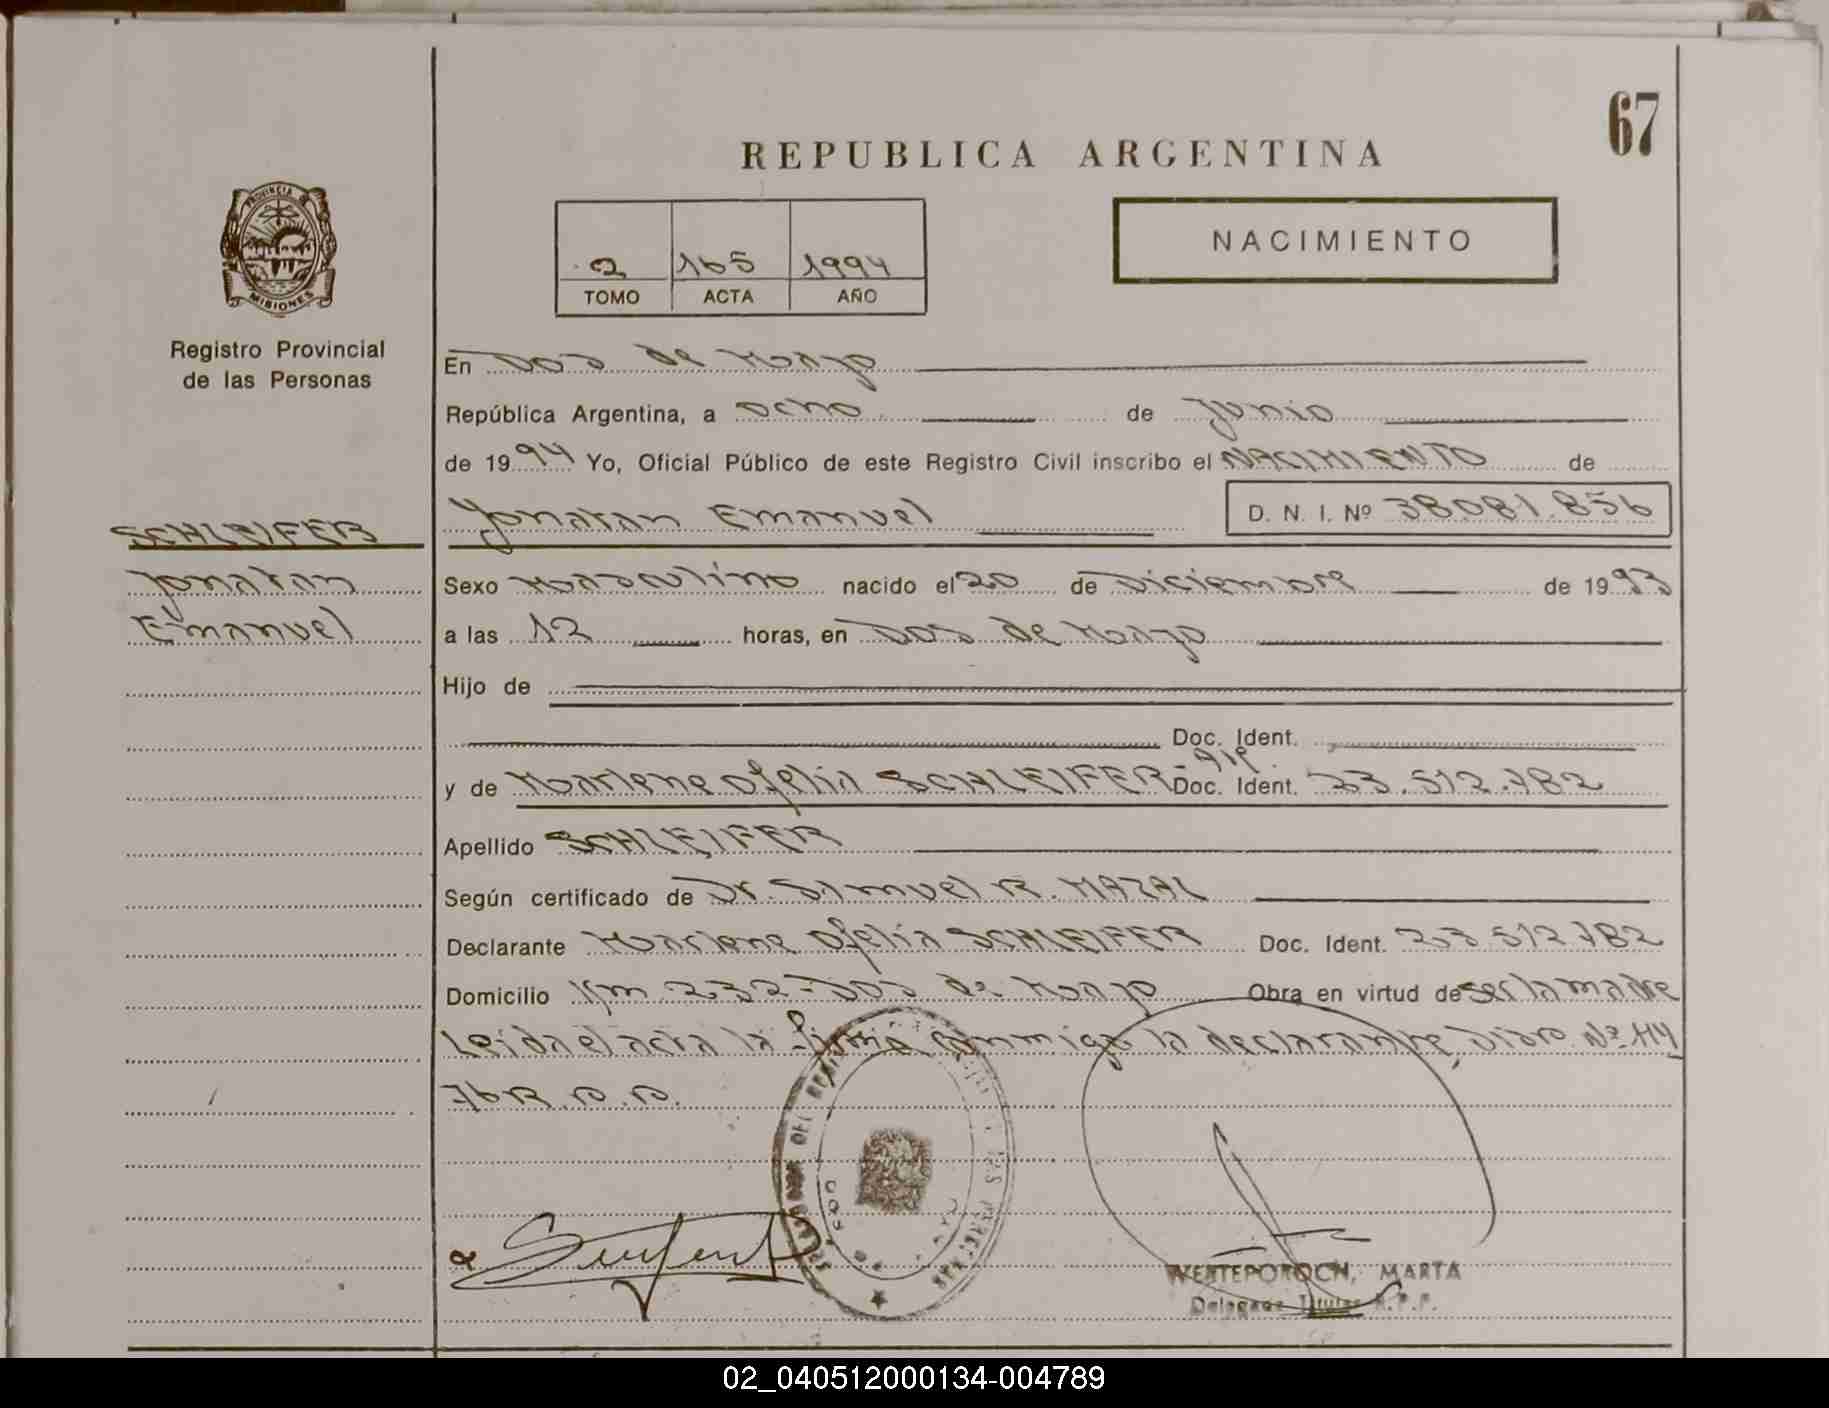 67
REPUBLICA ARGENTINA
PROVINCIA
MISIONES
2 165 1994
TOMO ACTA AÑO
NACIMIENTO
Registro Provincial
de las Personas
En Dos de Mayo
República Argentina, a ocho de Junio
de 1994 Yo, Oficial Público de este Registro Civil inscribo el NACIMIENTO de
SCHLEIFER
Jonatan
Emanuel
Yonatan Emanuel D. N. I. Nº 38.081.856
Sexo Masculino nacido el 20 de Diciembre de 1993
a las 12 horas, en Dos de Mayo
Hijo de
Doc. Ident.
y de Marlene Ofelia SCHLEIFER - Arg. Doc. Ident. 23.512.782
Apellido SCHLEIFER
Según certificado de Dr. Samuel R. MAZAL
Declarante Marlene Ofelia SCHLEIFER Doc. Ident. 23.512.782
Domicilio Km 232 - Dos de Mayo Obra en virtud de ser la madre
Leida el acta la firma conmigo la declarante, Libro Nº 114
76
DOS
MARTA
Delegada Titular R.P.P.
02_040512000134-004789